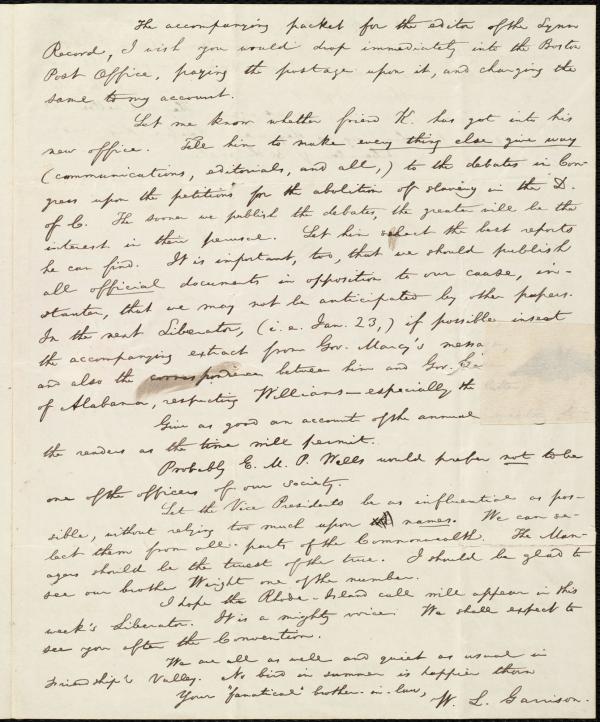 The accompanying packet for the editor of the Lynn
Record, I wish you would drop immediately into the Boston
Post Office, paying the postage upon it, and charging the
same to my account.
Let me know whether friend K. has got into his
new office. Tell him to make every thing else give way
(communications, editorials, and all,) to the debates in Con-
gress upon the petitions for the abolition of slavery in the D.
of C. The sooner we publish the debates, the greater will be the
interest in their perusal. Let him select the best reports
he can find. It is important, too, that we should publish
all official documents in opposition to our cause, in-
stanter, that we may not be anticipated by other papers.
In the next Liberator, (i. e. Jan. 23,) if possible insert
the accompanying extract from Gov. Marcy's messa
and also the correspondence between him and Gov.
of Alabama, respecting Williams—especially the
Give as good an account of the annual
the readers as the time will permit.
Probably E. M. P. Wells would prefer not to be
one of the officers of our society.
Let the Vice Presidents be as influential as pos-
sible, without relying too much upon names. We can se-
lect them from all parts of the Commonwealth. The Man-
agers should be the truest of the true. I should be glad to
see our brother Wright one of the number.
I hope the Rhode-Island call will appear in this
week's Liberator. It is a mighty voice. We shall expect to
see you after the Convention.
We are all as well and quiet as usual in
Friendship's Valley. No bird in summer is happier than
Your "fanatical" brother-in-law, W. L. Garrison.